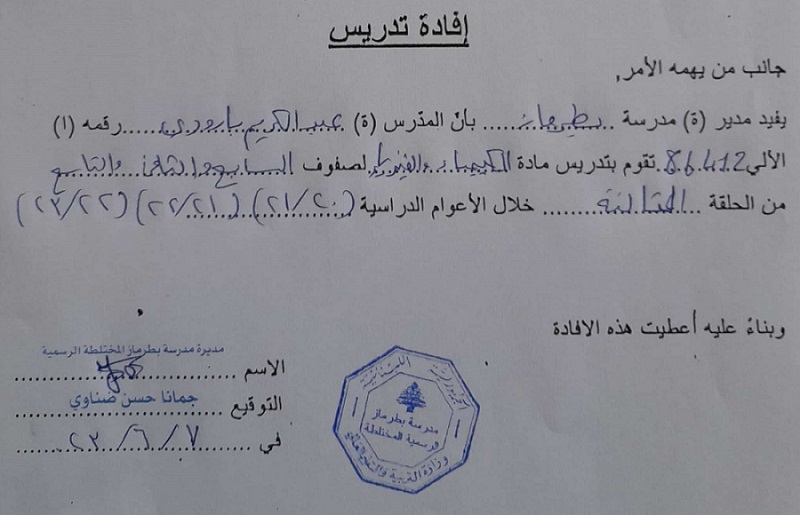 إفادة تدريس
جانب من يهمه الأمر,
يفيد مدير (ة) مدرسة ..بطرماز..... بانّ المدّرس (ة) عبد الكريم بارودي.....رقمه (١)
الألي 86412. تقوم بتدريس مادة الكيمياء والفيزياء لصفوف السابع والثامن والتاسع
من الحلقة ...الثالثة......... خلال الأعوام الدراسية (٢١/٢٠) (٢٢/٢١) (٢٣/٢٢)
وبناءً عليه أعطيت هذه الافادة
مديرة مدرسة بطرماز المختلطة الرسمية
الاسم ..............................
جمانا حسن ضناوي
التوقيع ..............................
في ....٢٣/٦/٧....
الجمهورية اللبنانية
مدرسة بطرماز
الرسمية المختلطة
وزارة التربية والتعليم العالي